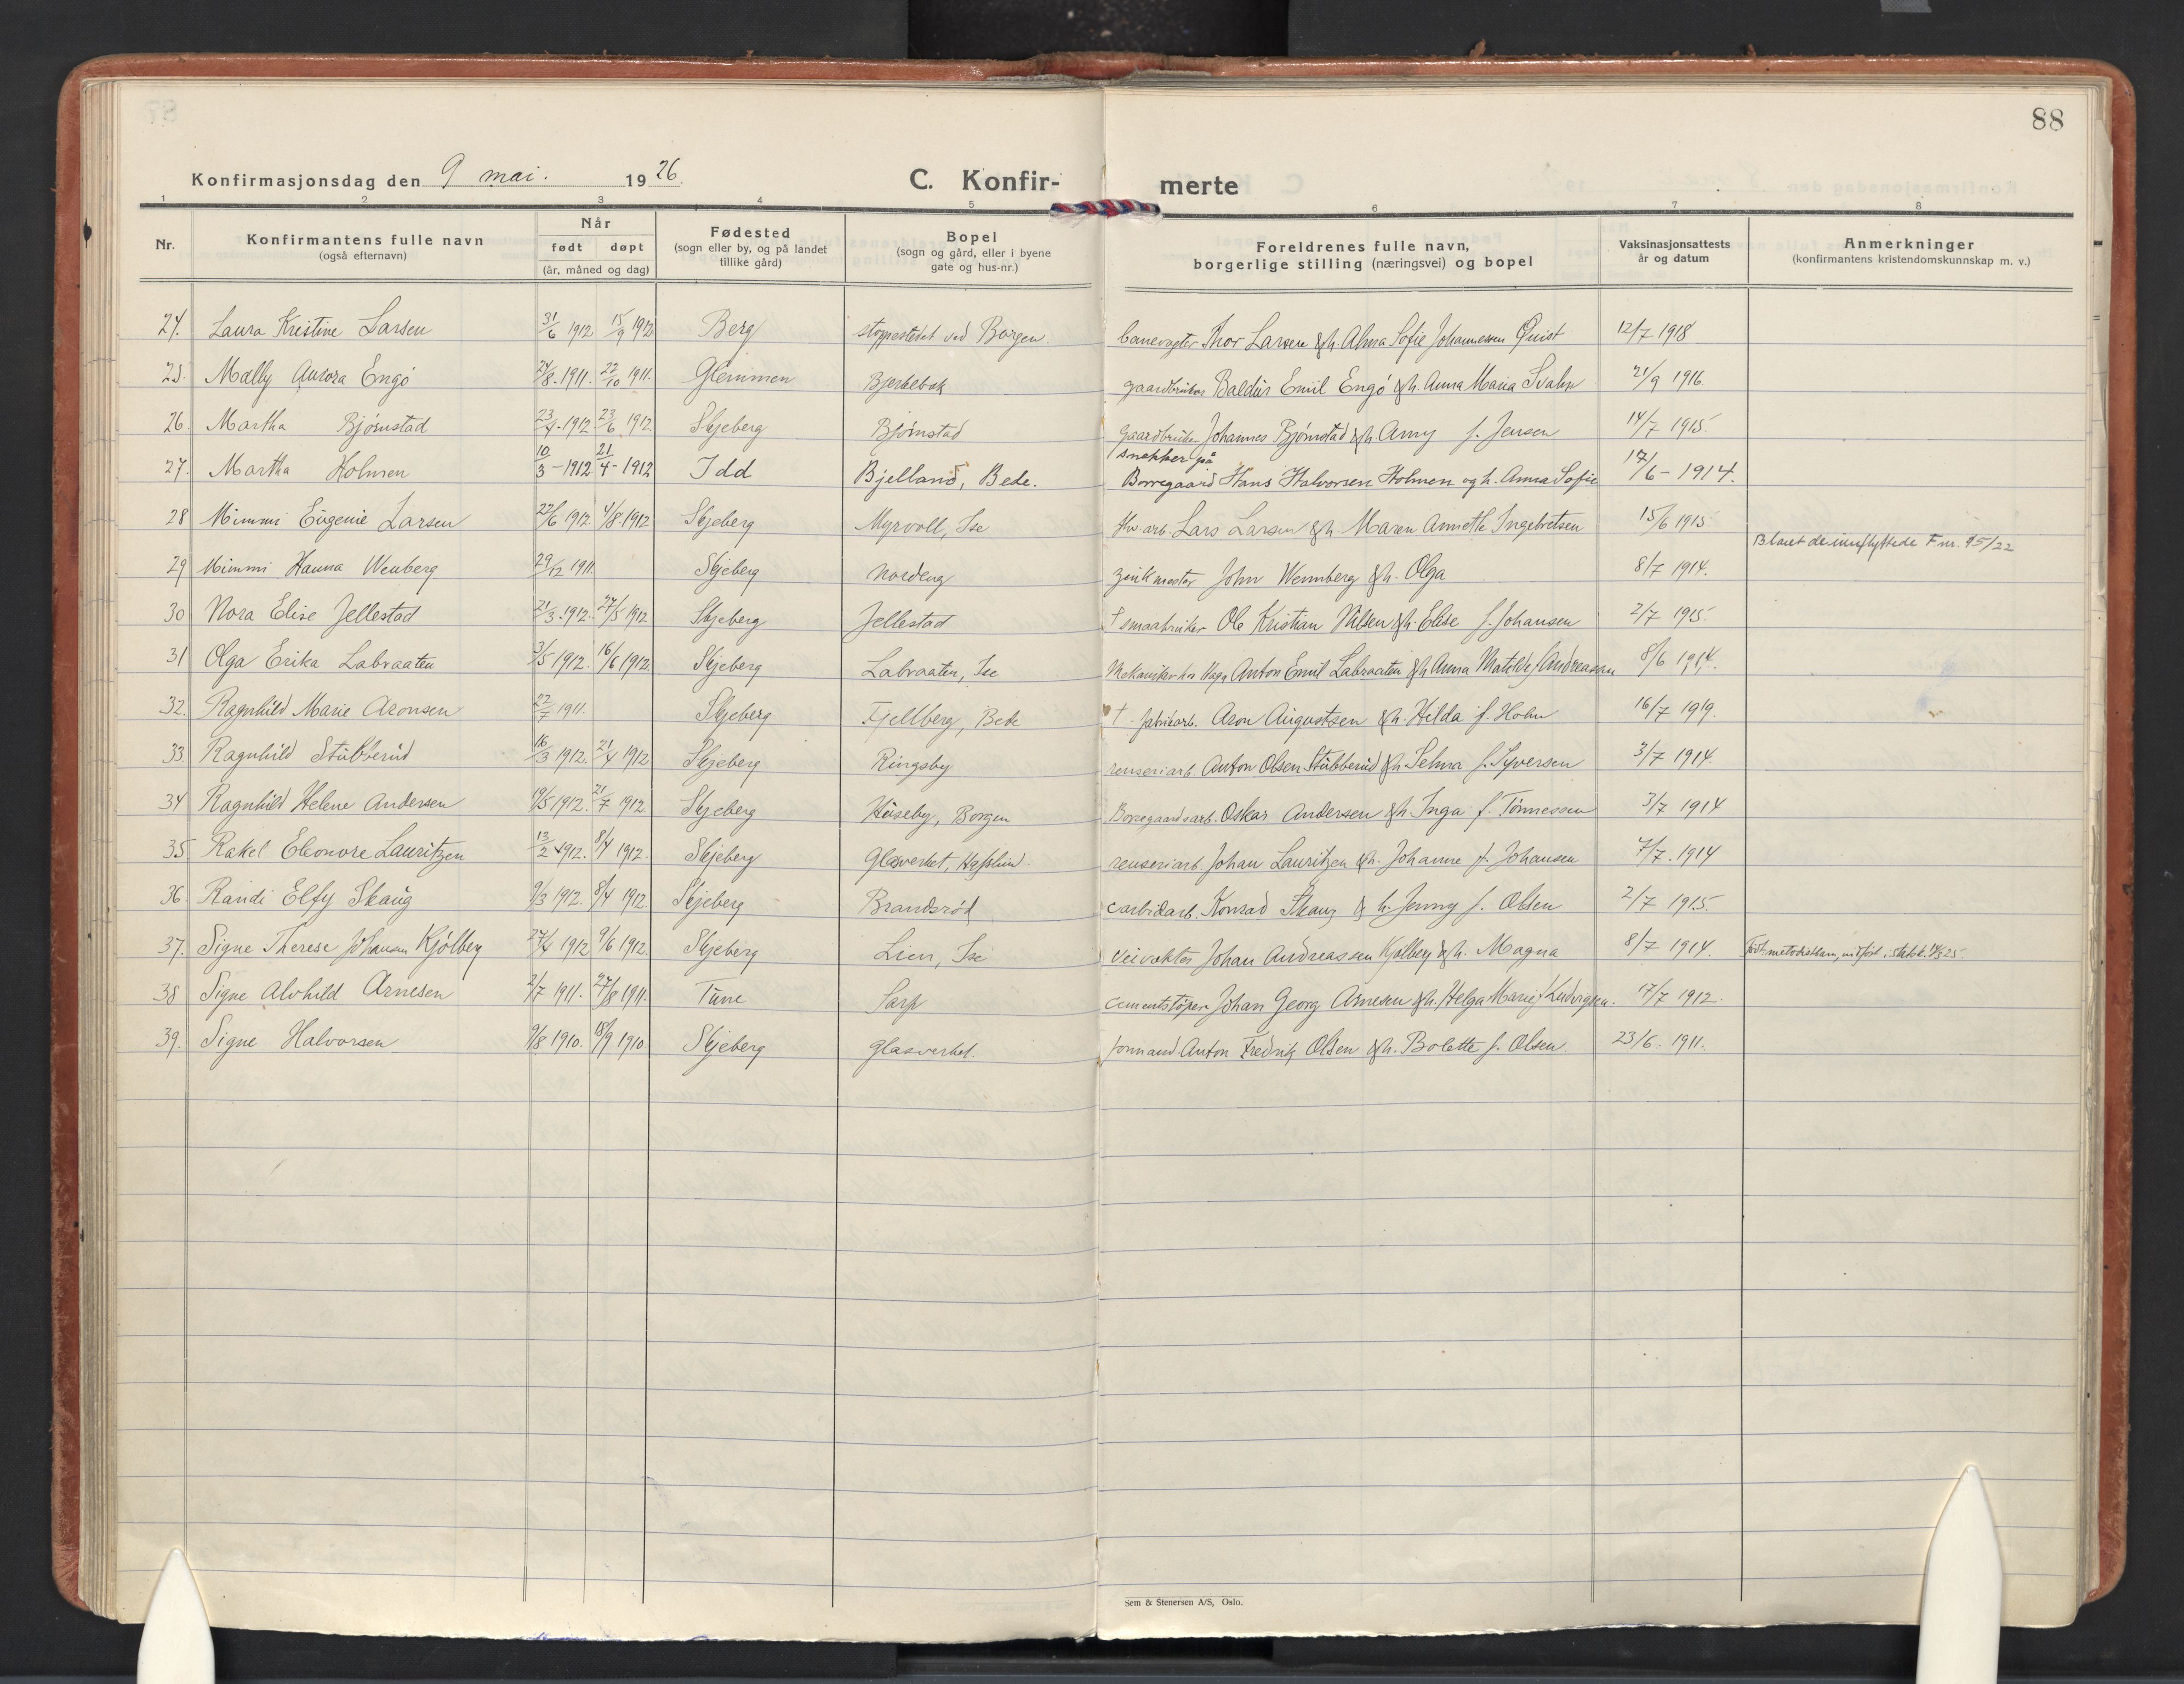 88
Konfirmasjonsdag den 9 mai. 1926. C. Konfir- merte
1 2 3 4 5 6 7 8
Nr. Konfirmantens fulle navn (også efternavn) Når født døpt (år, måned og dag) Fødested (sogn eller by, og på landet tillike gård) Bopel (sogn og gård, eller i byene gate og hus-nr.) Foreldrenes fulle navn, borgerlige stilling (næringsvei) og bopel Vaksinasjonsattests år og datum Anmerkninger (konfirmantens kristendomskunnskap m. v.)
24. Laura Kristine Larsen 31/6 1912 15/9 1912 Berg stoppestedet ved Borgen banevogter Thor Larsen & h. Alma Sofie Johannessen Quist 12/7 1918
25. Mally Aurora Engö 24/8. 1911. 22/10 1911. Glemmen Bjerkebæk gaardbruker Baldur Emil Engö & h. Anna Maria Svahn 21/9 1916
26. Martha Bjørnstad 23/4. 1912. 23/6 1912 Skjeberg Bjørnstad gaardbruker Johannes Bjørnstad & h. Amy f. Jensen 14/7 1915.
27. Martha Holmen 10/3 - 1912 21/4 - 1912 Idd Bjelland, Bede. snekker på Borregaard Hans Halvorsen Holmen og h. Anna Sofie 17/6 - 1914.
28 Mimmi Eugenie Larsen 22/6 1912 4/8. 1912 Skjeberg Myrvoll, Ise Hv. arb. Lars Larsen & h. Maren Annette Ingebretsen 15/6 1915
29 Mimmi Hanna Wenberg 29/12 1911 Skjeberg Nordeng zinkmester John Wennberg & h. Olga 8/7 1914. Blant de innflyttede F nr. 95/22
30 Nora Elise Jellestad 21/3. 1912. 27/5 1912 Skjeberg Jellestad † smaabruker Ole Kristian Nilsen & h. Elise f. Johansen 2/7 1915.
31 Olga Erika Labraaten 3/5 1912. 16/6 1912. Skjeberg Labraaten, Ise Mekaniker Anton Emil Labraaten & h Anna Matilde f. Andreassen 8/6 1914.
32. Ragnhild Marie Aronsen 22/7 1911. Skjeberg Fjellberg, Bede † fabrikarb. Aron Augustsen & h. Hilda f. Holm 16/7 1919.
33. Ragnhild Stubberud 16/3 1912. 21/4 1912 Skjeberg Ringsby renseriarb. Anton Olsen Stubberud & h. Selma f. Syversen 3/7 1914.
34 Ragnhild Helene Andersen 19/5 1912. 21/7 1912 Skjeberg Huseby, Borgen Borregaardsarb. Oskar Andersen & h. Inga f. Tønnessen 3/7 1914
35 Rakel Eleonore Lauritzen 13/2 1912. 8/4 1912. Skjeberg Glasverket, Hafslund. renseriarb. Johan Lauritzen & h. Johanne f. Johansen 7/7. 1914
36. Randi Elfy Skaug 9/3 1912. 8/4 1912. Skjeberg Brandsröd carbidarb. Konrad Skaug & h. Jenny f. Olsen 2/7 1915.
37. Signe Therese Johansen Kjölberg 27/4 1912 9/6 1912. Skjeberg Lien, Ise Veivokter Johan Andreassen Kjølberg & h. Magna 8/7 1914.
38 Signe Alvhild Arnesen 2/7 1911. 27/8 1911. Tune Sarp cementstøper Johan Georg Arnesen & h. Helga Marie f. Ludvigsen. 17/7 1912.
39. Signe Halvorsen 9/8 1910. 18/9 1910. Skjeberg Glasverket. formand Anton Fredrik Olsen & h. Bolette f. Olsen 23/6. 1911.
Sem & Stenersen A/S, Oslo.